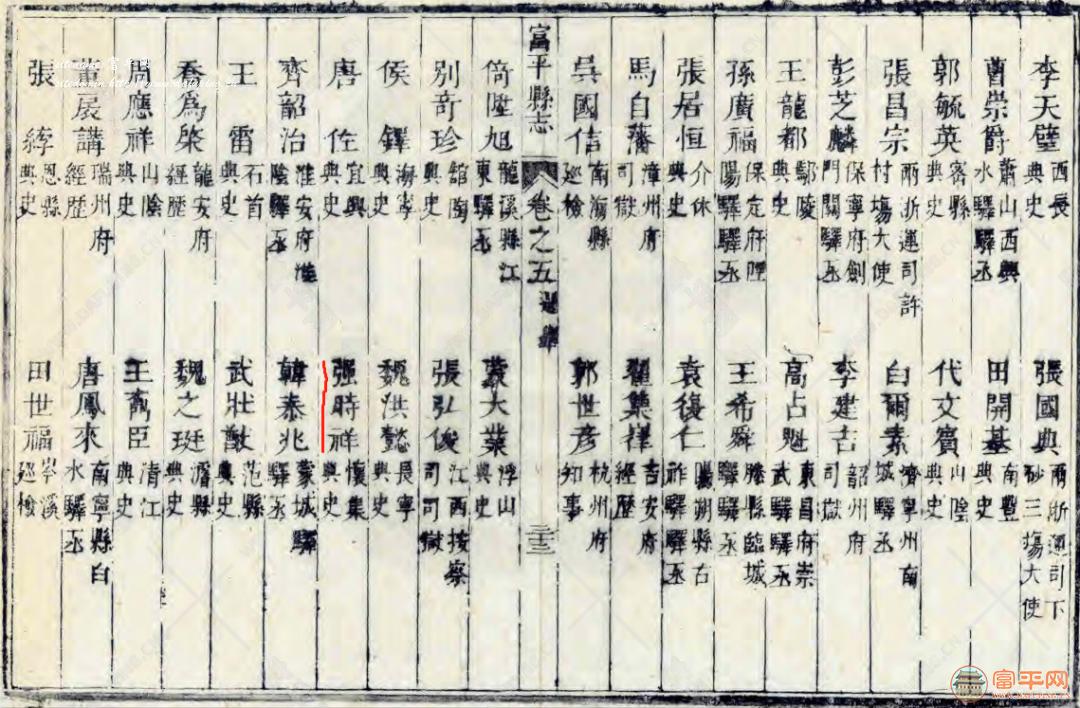 李天璧 西長典史 張國典 兩浙運司下砂三塲大使
曹崇爵 蕭山西興水驛驛丞 田開基 南豐典史
郭毓英 密縣典史 代文賓 山陰典史
張昌宗 兩浙運司許村塲大使 白爾素 濟寧州南城驛丞
彭芝麟 保寧府劍門關驛丞 李建吉 韶州府司獄
王龍都 鄢陵典史 高占魁 東昌府崇武驛驛丞
孫廣福 保定府陘陽驛驛丞 王希舜 滕縣臨城驛驛丞
張居恒 介休典史 袁復仁 陽朔縣古祚驛驛丞
馬自藩 漳州府司獄 翟集 吉安府經歷
吳國信 南海縣巡檢 郭世彥 杭州府知事
富平縣志 卷之五 選舉 二十三
倚陞旭 龍溪縣江東驛丞 蒙大業 浮山典史
别奇珍 館陶典史 張弘俊 江西按察司司獄
侯鐸 海寧典史 魏洪懿 長寧典史
唐佐 宜興典史 强時祥 懷集典史
齊韶治 淮安府淮陰驛丞 韓泰兆 蒙城驛驛丞
王雷 石首典史 武壯猷 范縣典史
喬為棨 龍安府經歷 魏之珽 濬縣典史
周應祥 山陰典史 王裔臣 清江典史
董展講 瑞州府經歷 唐鳳來 南寧縣白水驛丞
張綍 恩縣典史 田世福 岑溪巡檢
富平网